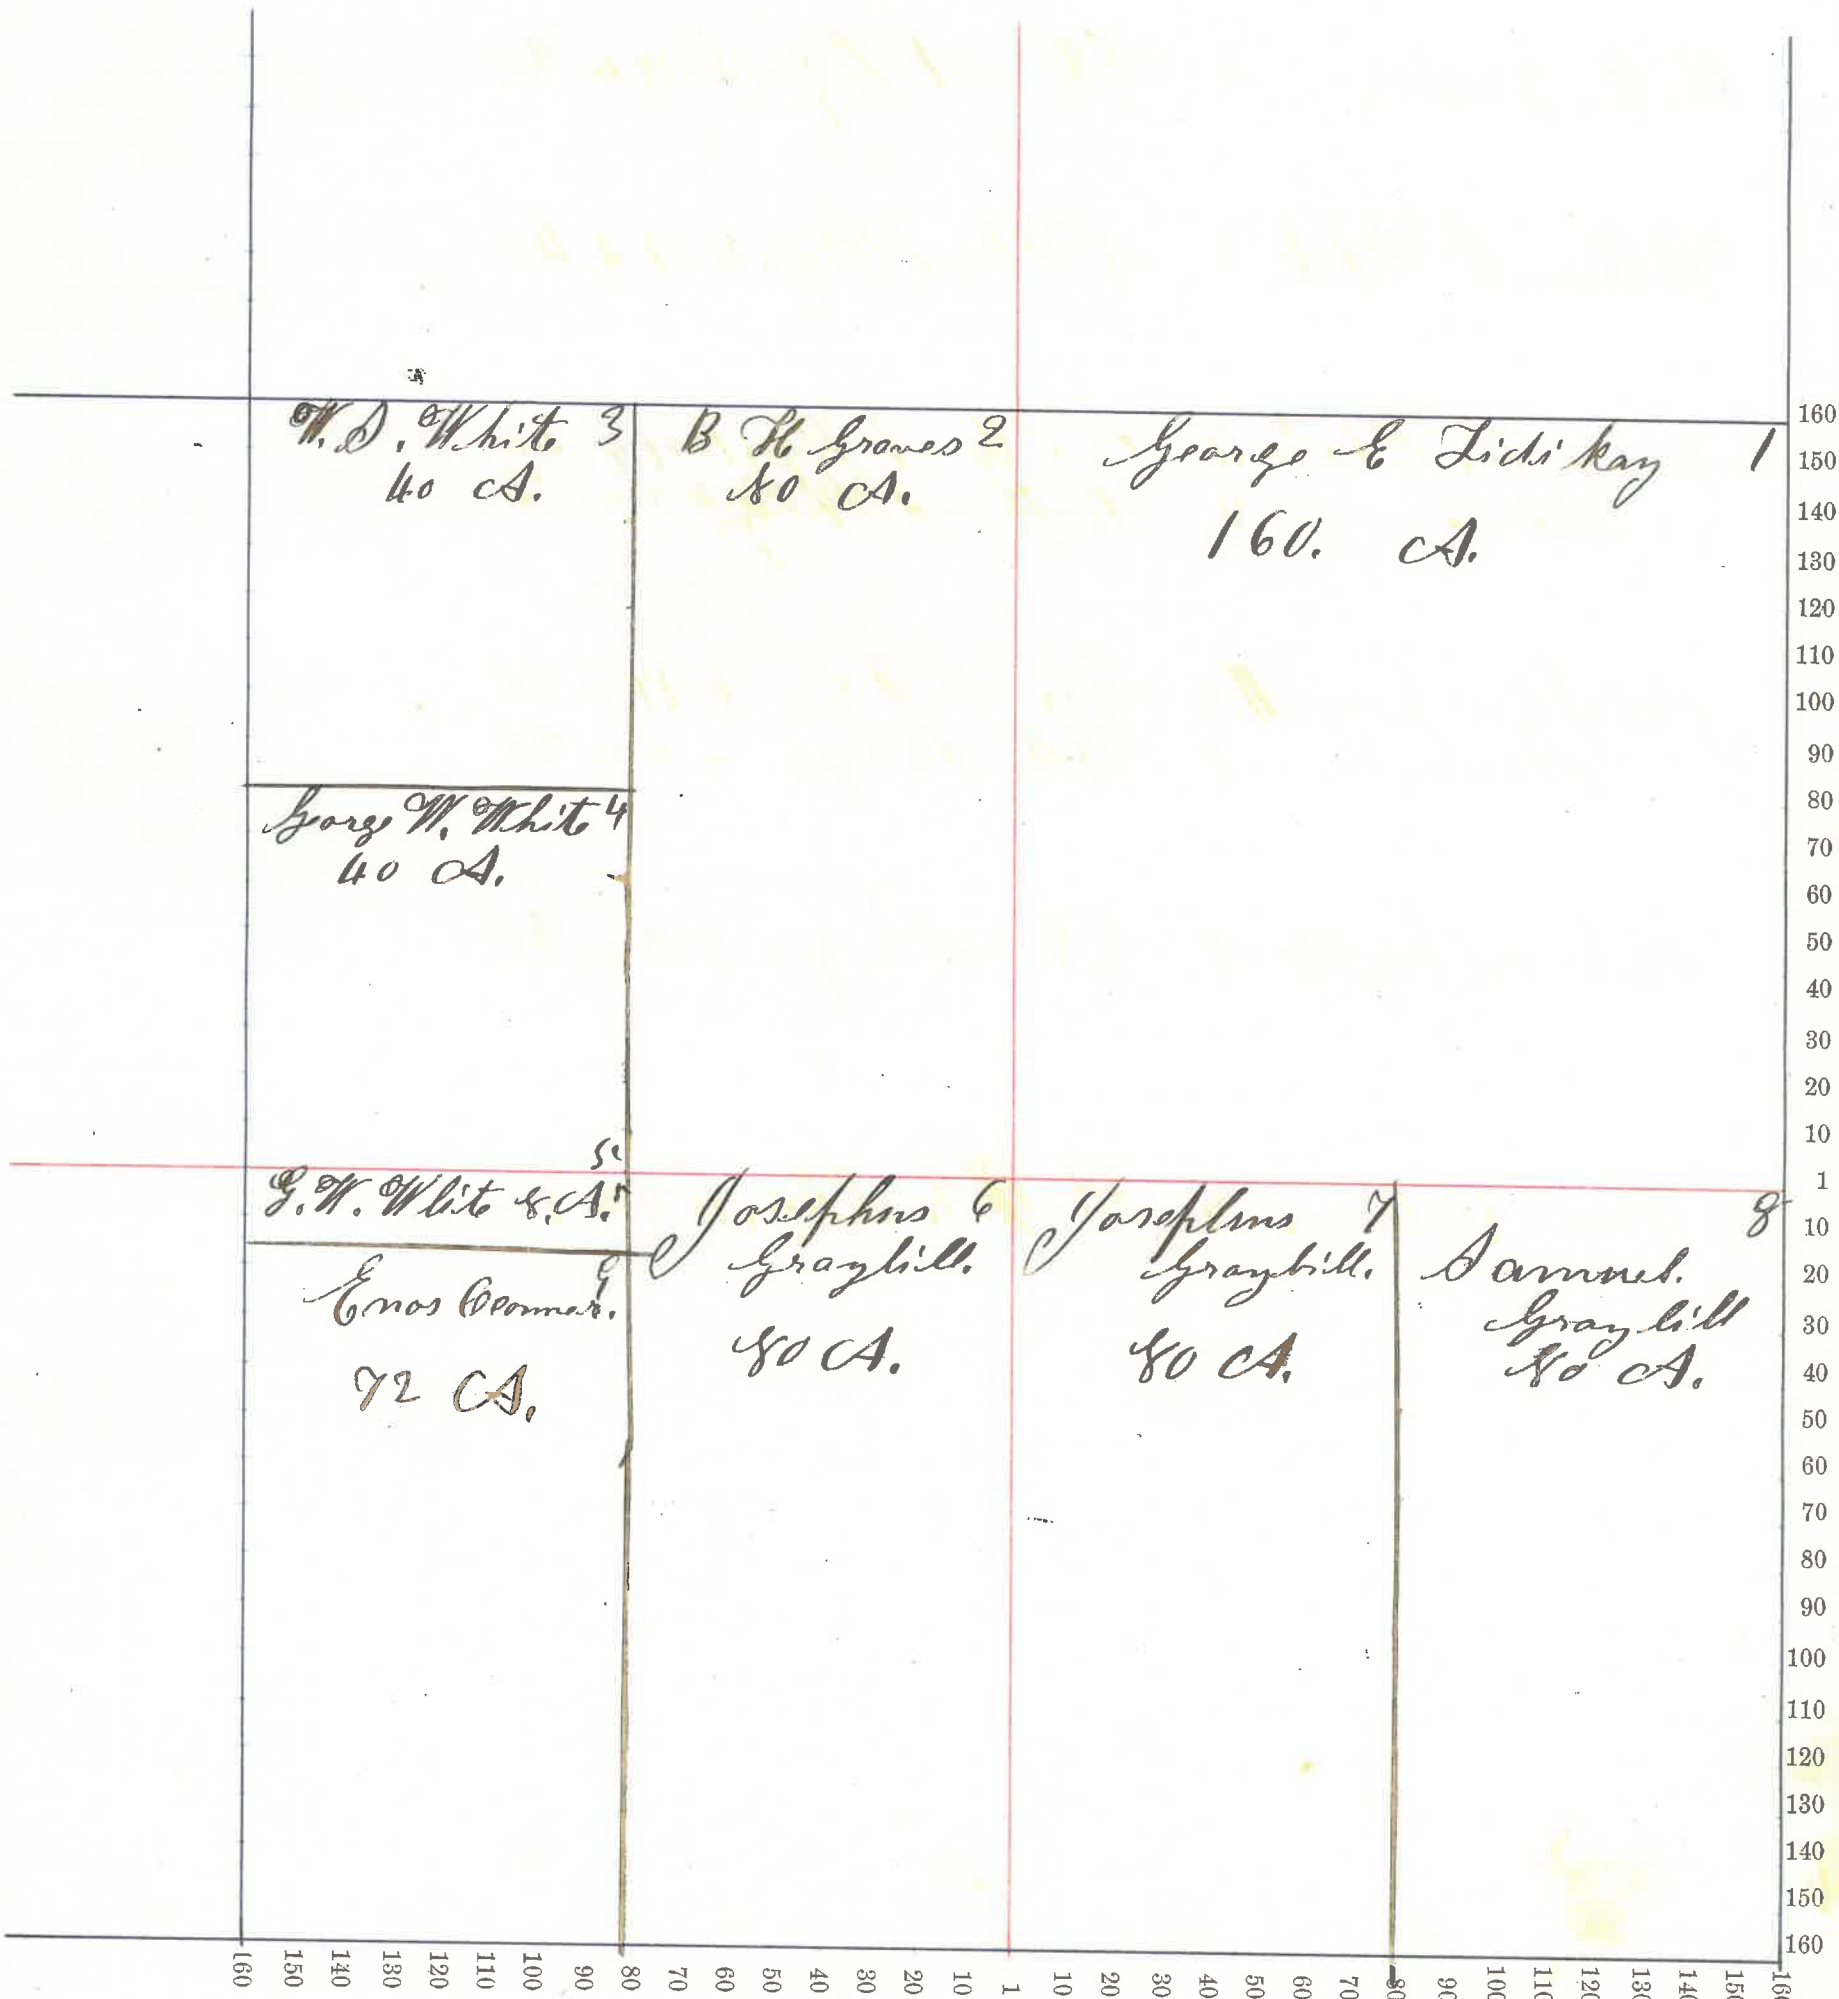 W. D. White 3
40 A.
B H Graves 2
80 A.
George E Lidikay 1
160. A.
George W. White 4
40 A.
5
G. W. White 8. A. 5
Enos 9
72 A.
Josephus 6
Graybill.
80 A.
Josephus 7
Graybill.
80 A.
8
Samuel.
Graybill
80 A.
160
150
140
130
120
110
100
90
80
70
60
50
40
30
20
10
1
10
20
30
40
50
60
70
80
90
100
110
120
130
140
150
160
160 150 140 130 120 110 100 90 80 70 60 50 40 30 20 10 1 10 20 30 40 50 60 70 80 90 100 110 120 130 140 150 160